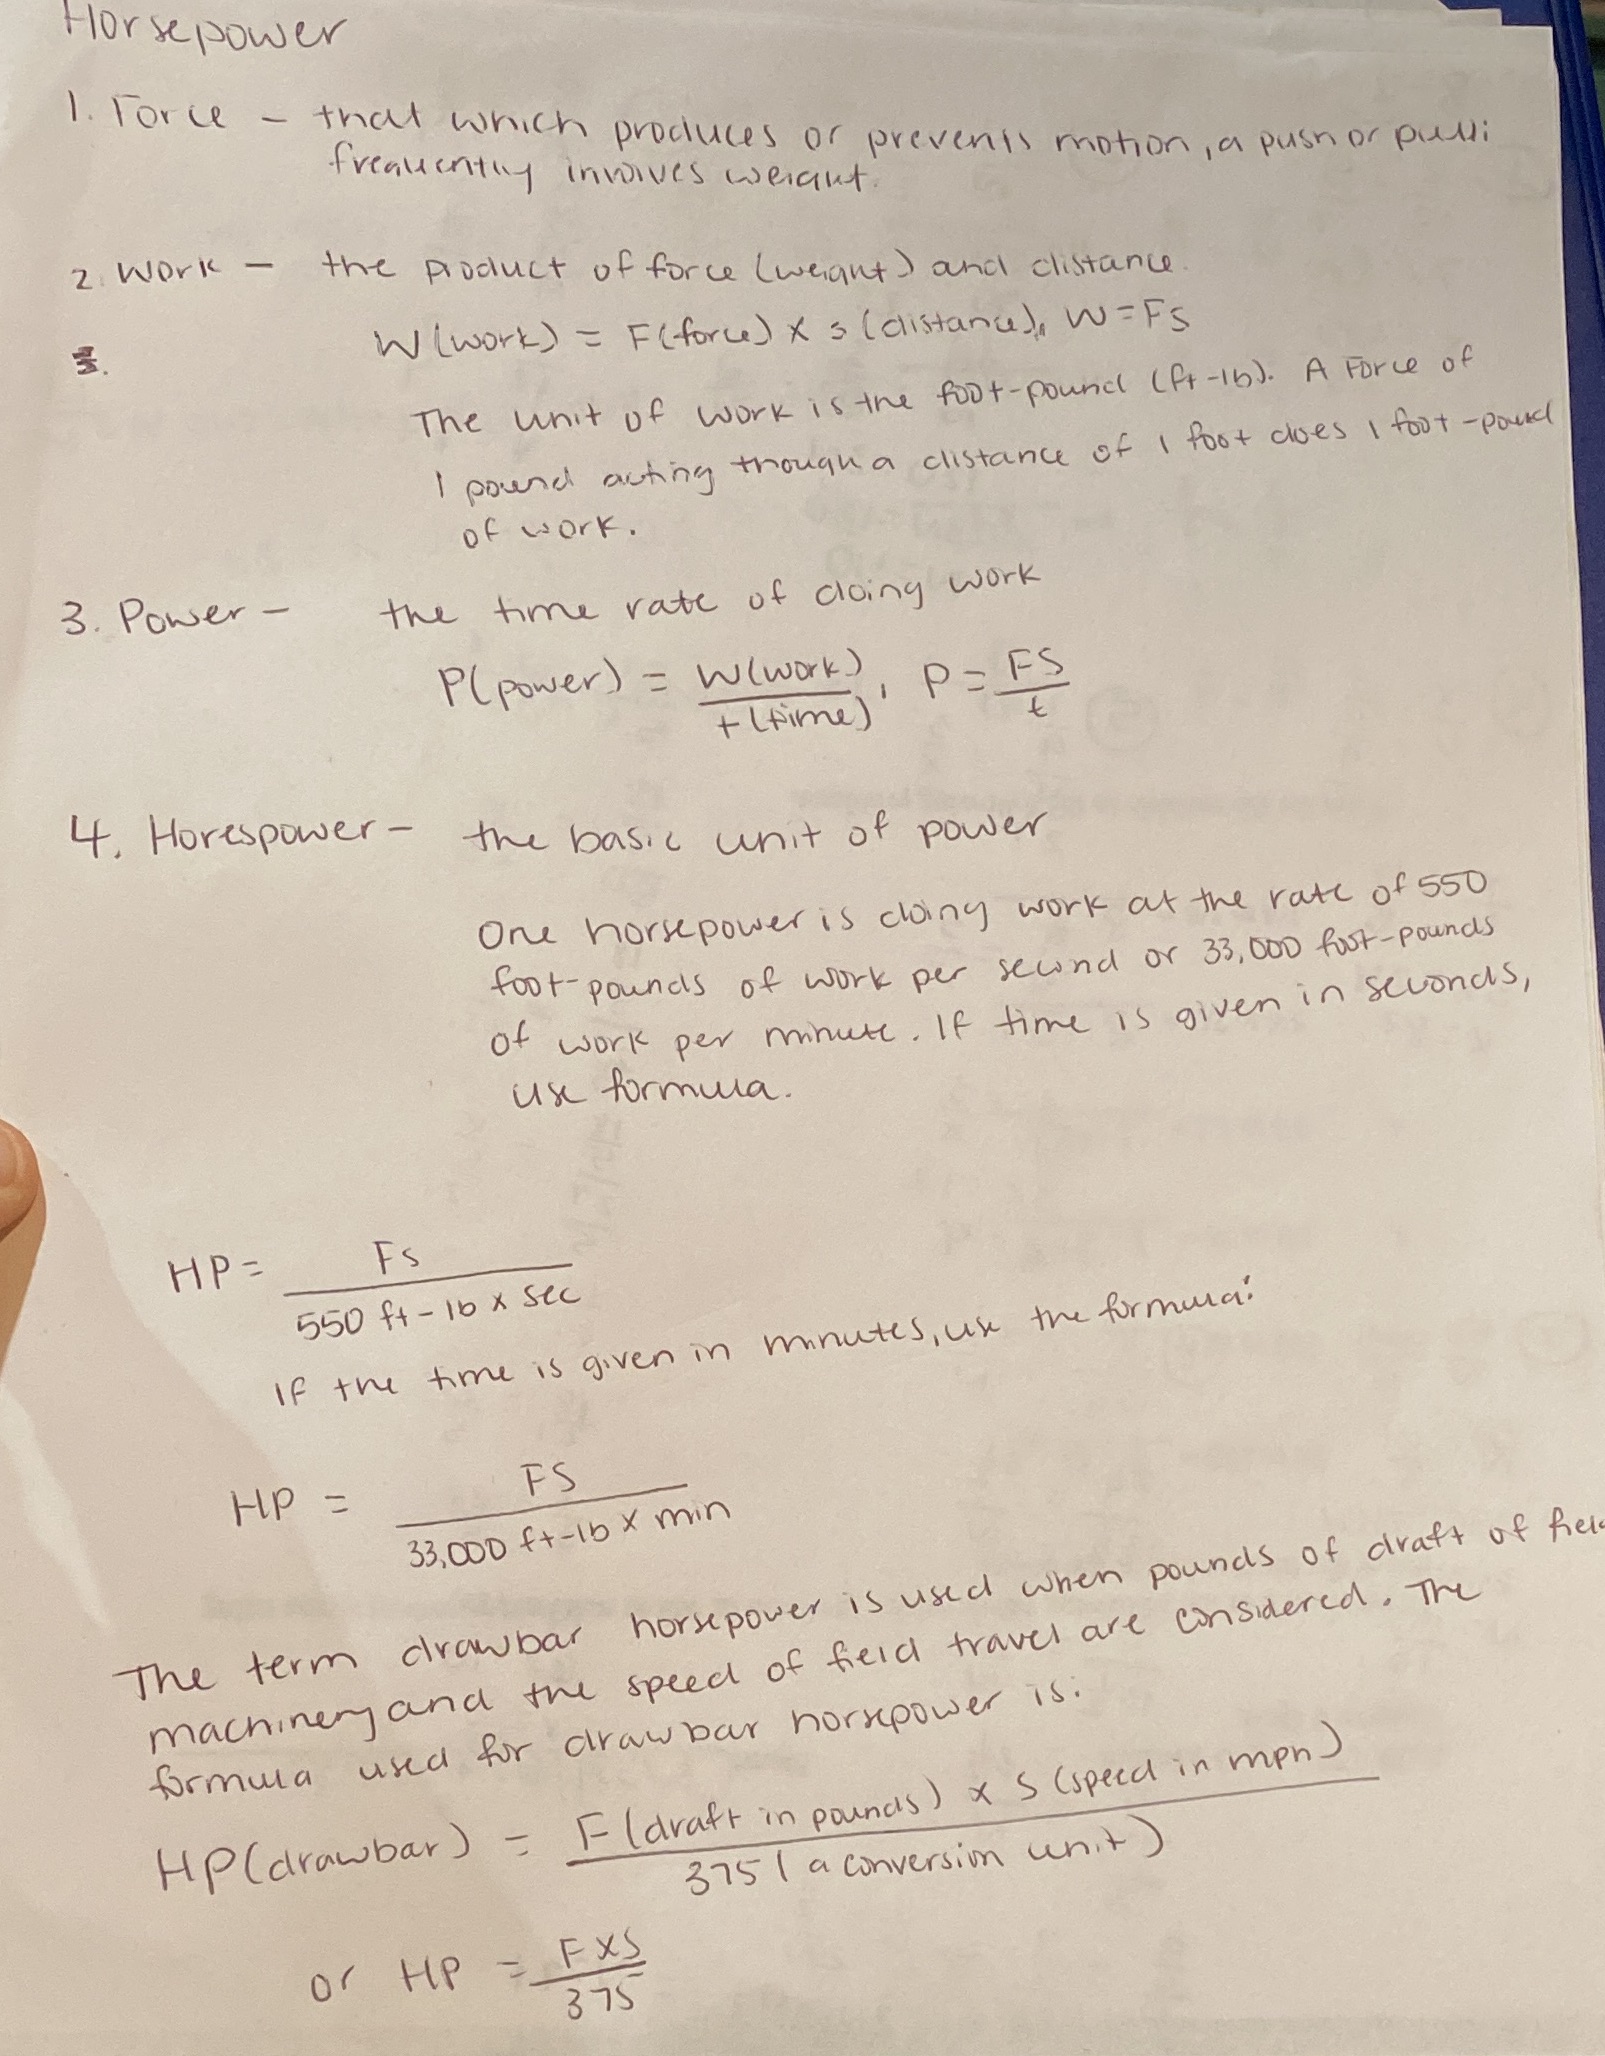 Horsepower
1. Force - that which produces or prevents motion, a push or pull;
frequently involves weight.
2. Work - the product of force (weight) and distance.
W (work) = F(force) X s (distance), W=Fs
3.
The unit of work is the foot-pound (ft-lb). A Force of
1 pound acting though a distance of 1 foot does 1 foot-pound
of work.
3. Power - the time rate of doing work
P(power) = W(work) / t(time), P = FS / t
4. Horespower - the basic unit of power
One horsepower is doing work at the rate of 550
foot-pounds of work per second or 33,000 foot-pounds
of work per minute. If time is given in seconds,
use formula.
HP = Fs / 550 ft-lb x sec
If the time is given in minutes, use the formula:
HP = FS / 33,000 ft-lb x min
The term drawbar horsepower is used when pounds of draft of field
machinery and the speed of field travel are considered. The
formula used for drawbar horsepower is:
HP(drawbar) = F (draft in pounds) x S (speed in mph) / 375 (a conversion unit)
or HP = F X S / 375